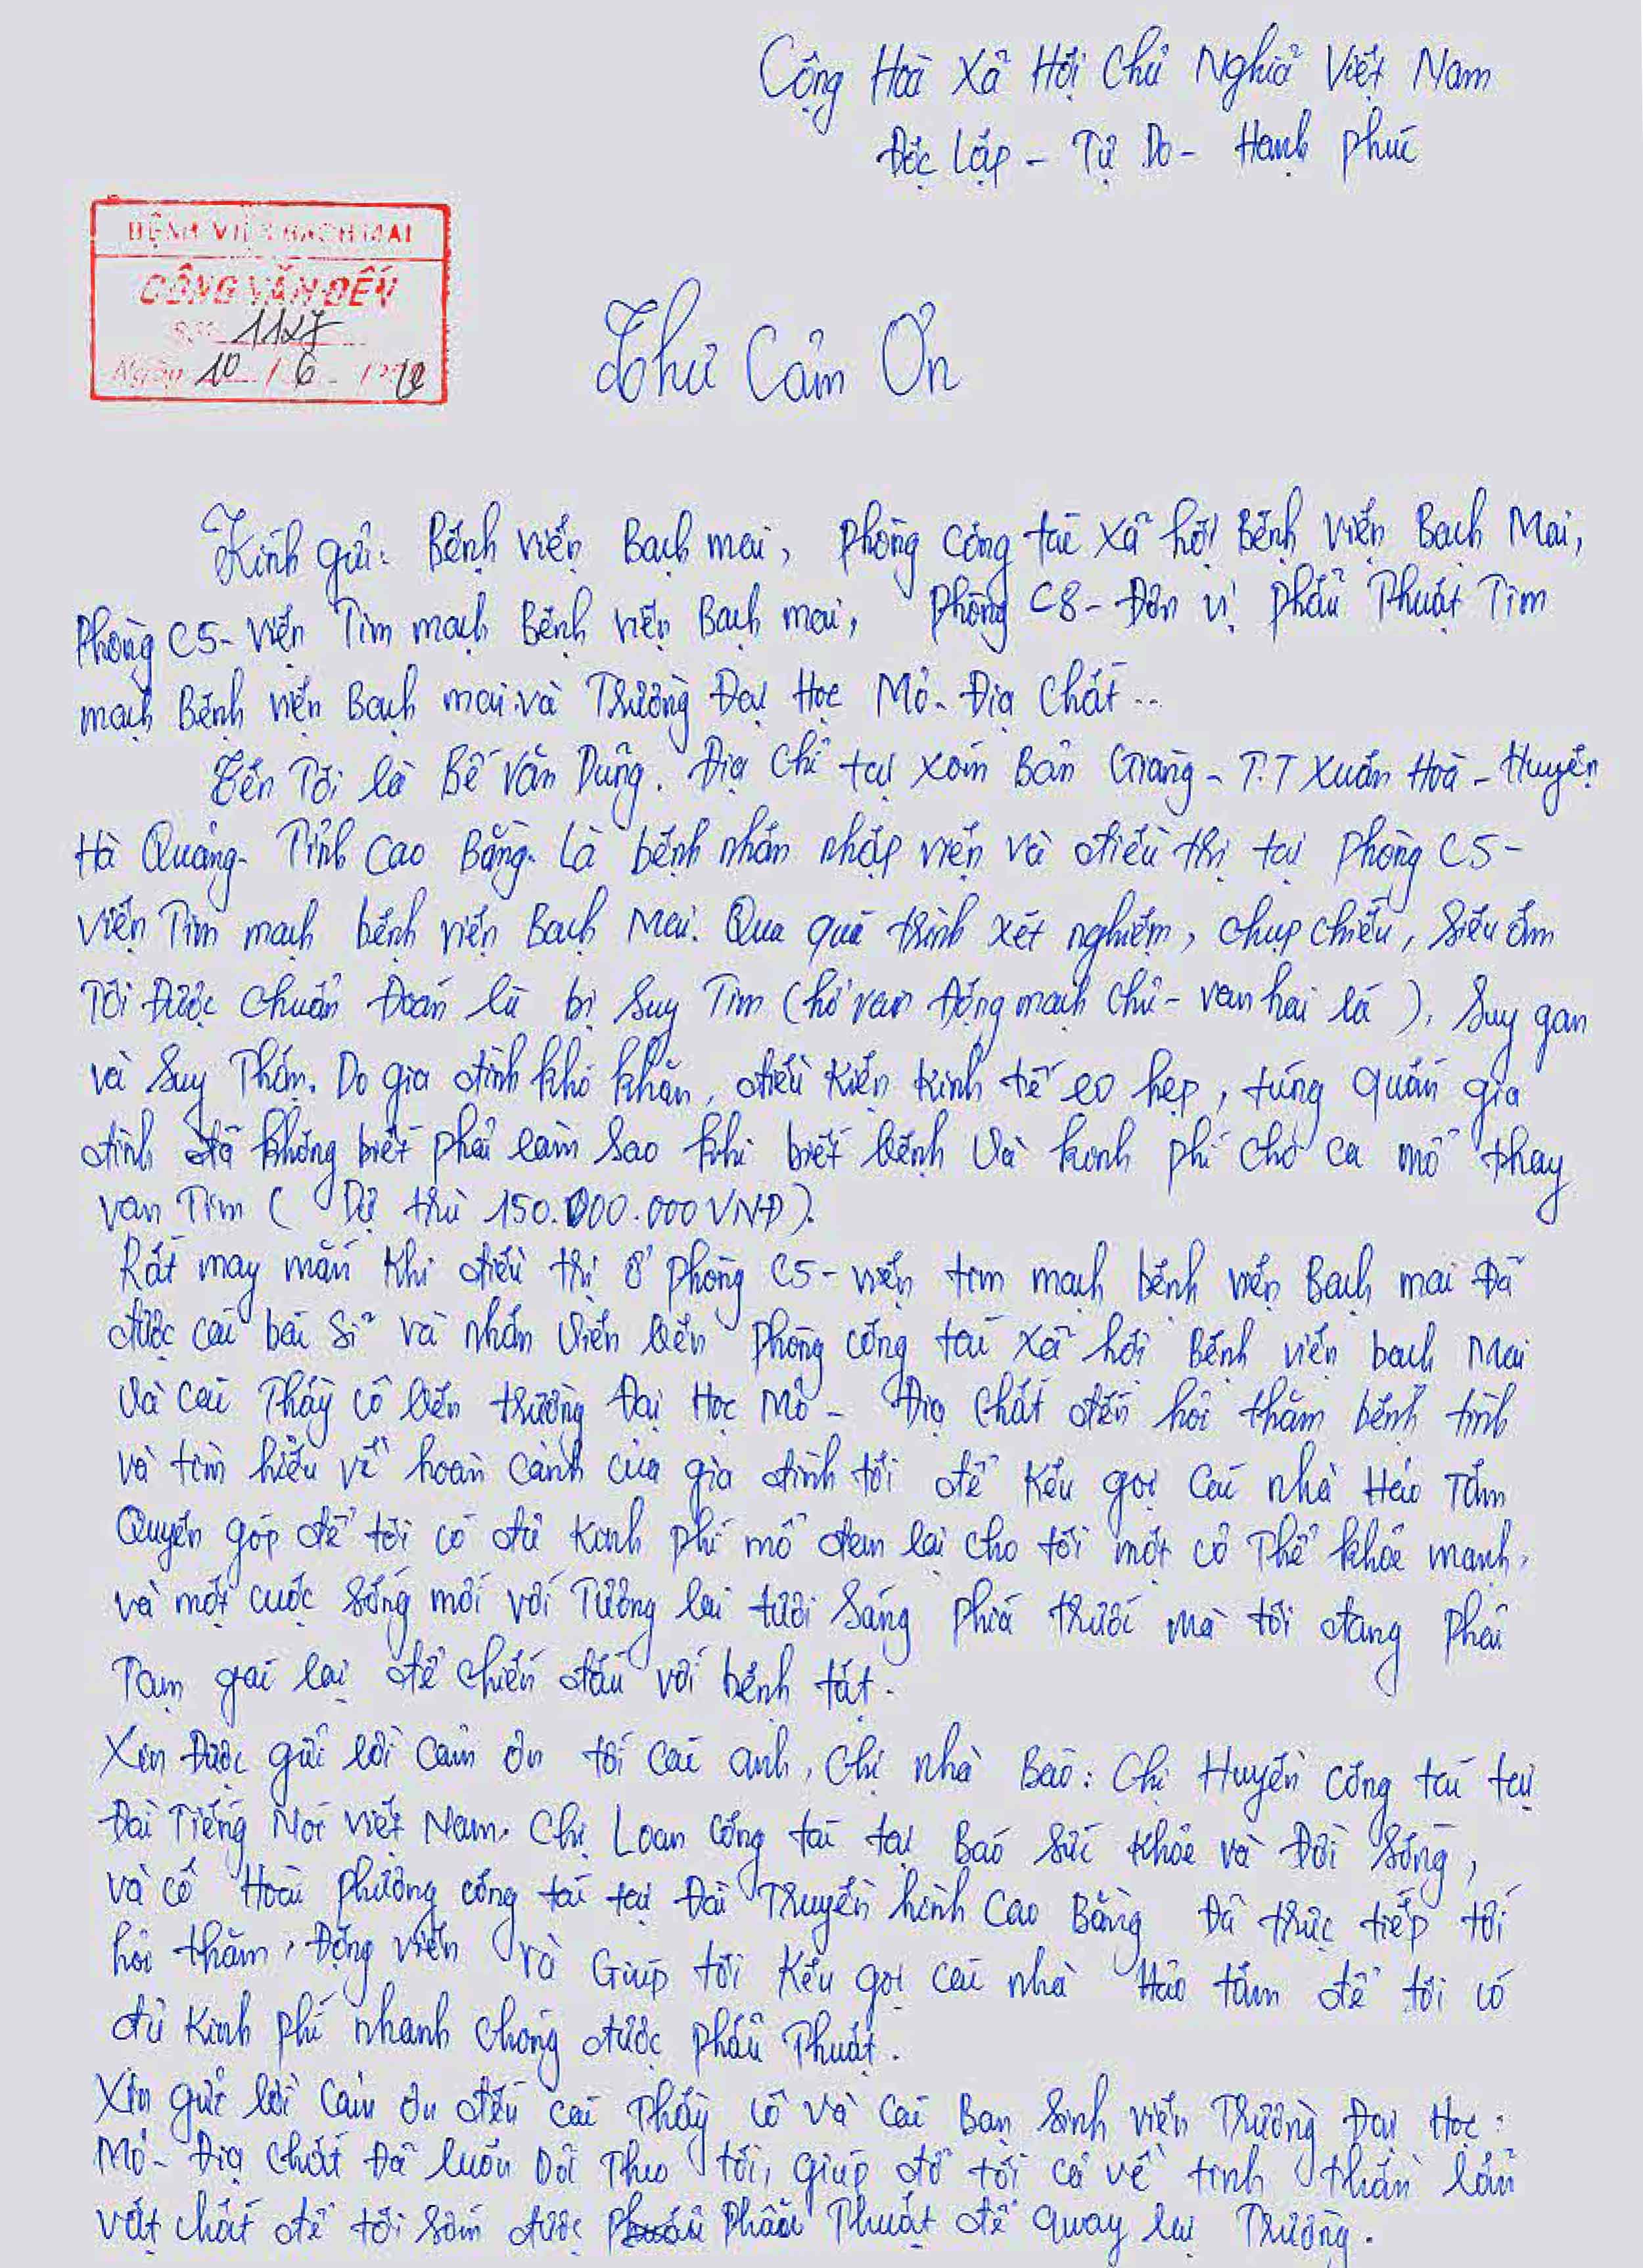 Cộng Hoà Xã Hội Chủ Nghĩa Việt Nam
Độc Lập - Tự Do - Hạnh phúc
BỆNH VIỆN BẠCH MAI
CÔNG VĂN ĐẾN
Số: 1127
Ngày 10 / 6
Thư Cảm Ơn
Kính gửi: Bệnh viện Bạch mai, phòng Công tác xã hội Bệnh viện Bạch Mai,
Phòng C5 - Viện Tim mạch Bệnh viện Bạch mai, phòng C8 - Đơn vị phẩu Thuật Tim
mạch Bệnh viện Bạch mai và Trường Đại Học Mỏ - Địa Chất...
Tên Tôi là Bế Văn Dũng. Địa Chỉ tại xóm Bản Giàng - T.T Xuân Hoà - Huyện
Hà Quảng - Tỉnh Cao Bằng. Là bệnh nhân nhập viện và điều trị tại phòng C5 -
Viện Tim mạch bệnh viện Bạch Mai. Qua quá trình xét nghiệm, chụp chiếu, siêu âm
Tôi Được chuẩn Đoán là bị Suy Tim (hở van Động mạch chủ - van hai lá), Suy gan
và Suy Thận. Do gia đình khó khăn, điều kiện kinh tế eo hẹp, túng quấn gia
đình đã không biết phải làm sao khi biết bệnh và kinh phí cho ca mổ thay
van Tim ( Dự trù 150.000.000 VNĐ).
Rất may mắn khi điều trị ở phòng C5 - viện tim mạch bệnh viện Bạch mai Đã
được các bác sĩ và nhân viên bên phòng công tác xã hội Bệnh viện bạch Mai
và các Thầy cô bên trường Đại Học Mỏ - Địa chất đến hỏi thăm bệnh tình
và tìm hiểu về hoàn cảnh của gia đình tôi để kêu gọi các nhà Hảo Tâm
Quyên góp để tôi có đủ kinh phí mổ đem lại cho tôi một cơ Thể khỏe mạnh,
và một cuộc sống mới với Tương lai tươi sáng phía trước mà tôi đang phải
Tạm gác lại để chiến đấu với bệnh tật.
Xin Được gửi lời cảm ơn tới các anh, chị nhà Báo: Chị Huyền công tác tại
Đài Tiếng Nói Việt Nam, Chị Loan công tác tại Báo sức khỏe và Đời sống,
và cô Hoài phương công tác tại Đài Truyền hình Cao Bằng Đã trực tiếp tới
hỏi thăm, Động viên và Giúp tôi kêu gọi các nhà Hảo tâm để tôi có
đủ kinh phí nhanh chóng được phẩu Thuật.
Xin gửi lời cảm ơn đến các Thầy cô và các Bạn sinh viên Trường Đại Học:
Mỏ - Địa chất Đã luôn Dõi Theo tôi, giúp đỡ tôi cả về tinh thần lẫn
vật chất để tôi sớm được phẩu Thuật để quay lại Trường.